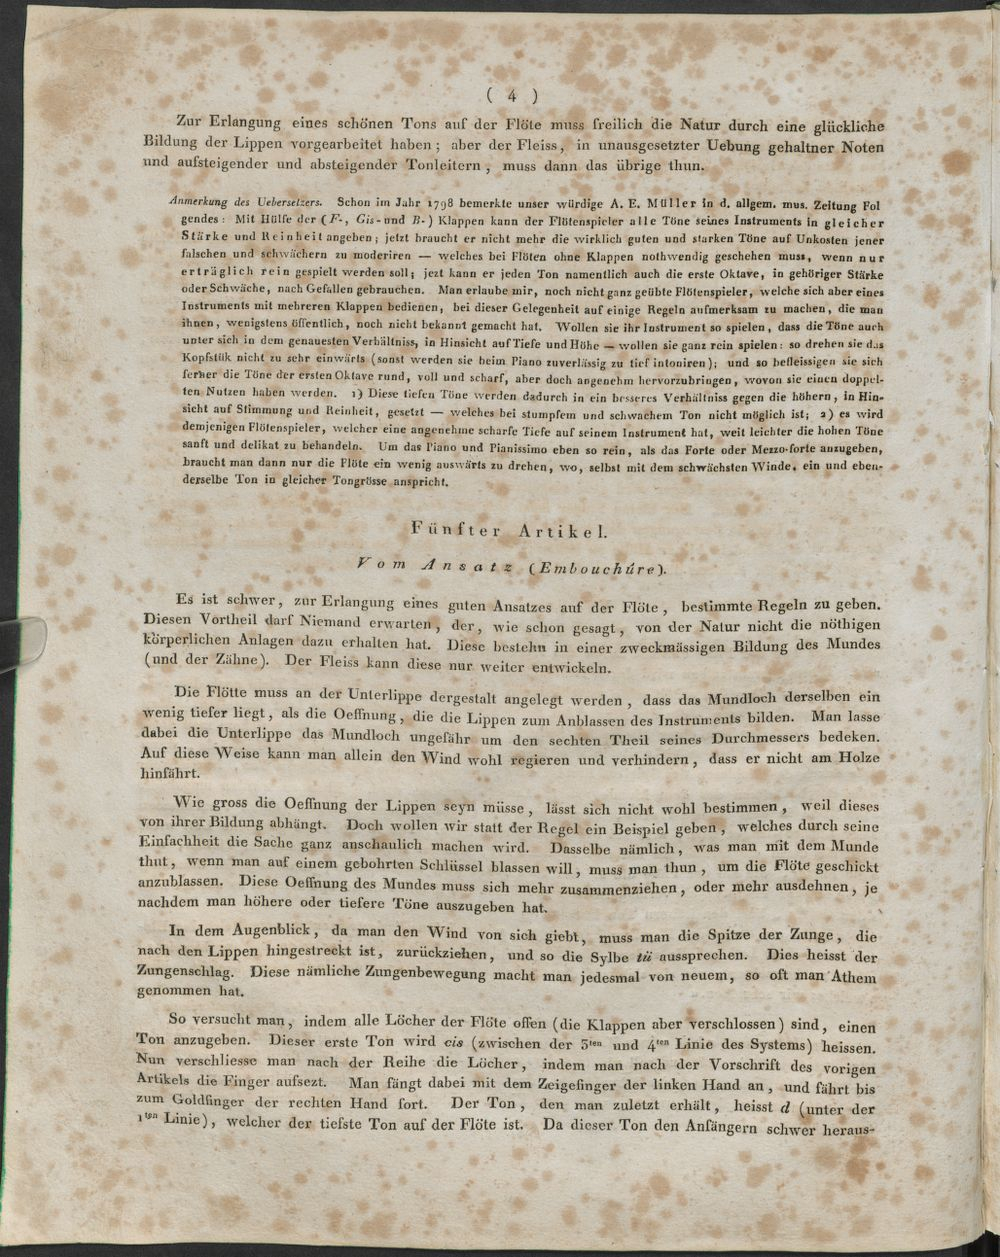 ( 4 )
Zur Erlangung eines schönen Tons auf der Flöte muss freilich die Natur durch eine glückliche
Bildung der Lippen vorgearbeitet haben ; aber der Fleiss, in unausgesetzter Uebung gehaltner Noten
und aufsteigender und absteigender Tonleitern , muss dann das übrige thun.
Anmerkung des Uebersetzers. Schon im Jahr 1798 bemerkte unser würdige A. E. Müller in d. allgem. mus. Zeitung Fol
gendes : Mit Hülfe der ( F-, Gis- und B- ) Klappen kann der Flötenspieler alle Töne seines Instruments in gleicher
Stärke und Reinheit angeben; jetzt braucht er nicht mehr die wirklich guten und starken Töne auf Unkosten jener
falschen und schwächern zu moderiren — welches bei Flöten ohne Klappen nothwendig geschehen muss, wenn nur
erträglich rein gespielt werden soll; jezt kann er jeden Ton namentlich auch die erste Oktave, in gehöriger Stärke
oder Schwäche, nach Gefallen gebrauchen. Man erlaube mir, noch nicht ganz geübte Flötenspieler, welche sich aber eines
Instruments mit mehreren Klappen bedienen, bei dieser Gelegenheit auf einige Regeln aufmerksam zu machen, die man
ihnen, wenigstens öffentlich, noch nicht bekannt gemacht hat. Wollen sie ihr Instrument so spielen, dass die Töne auch
unter sich in dem genauesten Verhältniss, in Hinsicht auf Tiefe und Höhe — wollen sie ganz rein spielen: so drehen sie das
Kopfstük nicht zu sehr einwärts (sonst werden sie beim Piano zuverlässig zu tief intoniren); und so befleissigen sie sich
ferner die Töne der ersten Oktave rund, voll und scharf, aber doch angenehm hervorzubringen, wovon sie einen doppel-
ten Nutzen haben werden. 1) Diese tiefen Töne werden dadurch in ein besseres Verhältniss gegen die höhern, in Hin-
sicht auf Stimmung und Reinheit, gesetzt — welches bei stumpfem und schwachem Ton nicht möglich ist; 2) es wird
demjenigen Flötenspieler, welcher eine angenehme scharfe Tiefe auf seinem Instrument hat, weit leichter die hohen Töne
sanft und delikat zu behandeln. Um das Piano und Pianissimo eben so rein, als das Forte oder Mezzo-forte anzugeben,
braucht man dann nur die Flöte ein wenig auswärts zu drehen, wo, selbst mit dem schwächsten Winde, ein und eben-
derselbe Ton in gleicher Tongrösse anspricht.
Fünfter Artikel.
Vom Ansatz (Embouchûre).
Es ist schwer, zur Erlangung eines guten Ansatzes auf der Flöte , bestimmte Regeln zu geben.
Diesen Vortheil darf Niemand erwarten , der, wie schon gesagt, von der Natur nicht die nöthigen
körperlichen Anlagen dazu erhalten hat. Diese bestehn in einer zweckmässigen Bildung des Mundes
(und der Zähne). Der Fleiss kann diese nur weiter entwickeln.
Die Flötte muss an der Unterlippe dergestalt angelegt werden , dass das Mundloch derselben ein
wenig tiefer liegt, als die Oeffnung, die die Lippen zum Anblassen des Instruments bilden. Man lasse
dabei die Unterlippe das Mundloch ungefähr um den sechten Theil seines Durchmessers bedeken.
Auf diese Weise kann man allein den Wind wohl regieren und verhindern, dass er nicht am Holze
hinfährt.
Wie gross die Oeffnung der Lippen seyn müsse , lässt sich nicht wohl bestimmen , weil dieses
von ihrer Bildung abhängt. Doch wollen wir statt der Regel ein Beispiel geben , welches durch seine
Einfachheit die Sache ganz anschaulich machen wird. Dasselbe nämlich, was man mit dem Munde
thut, wenn man auf einem gebohrten Schlüssel blassen will, muss man thun , um die Flöte geschickt
anzublassen. Diese Oeffnung des Mundes muss sich mehr zusammenziehen, oder mehr ausdehnen, je
nachdem man höhere oder tiefere Töne auszugeben hat.
In dem Augenblick, da man den Wind von sich giebt, muss man die Spitze der Zunge, die
nach den Lippen hingestreckt ist, zurückziehen, und so die Sylbe tü aussprechen. Dies heisst der
Zungenschlag. Diese nämliche Zungenbewegung macht man jedesmal von neuem, so oft man Athem
genommen hat.
So versucht man, indem alle Löcher der Flöte offen (die Klappen aber verschlossen) sind, einen
Ton anzugeben. Dieser erste Ton wird cis (zwischen der 3ten und 4ten Linie des Systems) heissen.
Nun verschliesse man nach der Reihe die Löcher, indem man nach der Vorschrift des vorigen
Artikels die Finger aufsezt. Man fängt dabei mit dem Zeigefinger der linken Hand an, und fährt bis
zum Goldfinger der rechten Hand fort. Der Ton, den man zuletzt erhält, heisst d (unter der
1ten Linie), welcher der tiefste Ton auf der Flöte ist. Da dieser Ton den Anfängern schwer heraus-